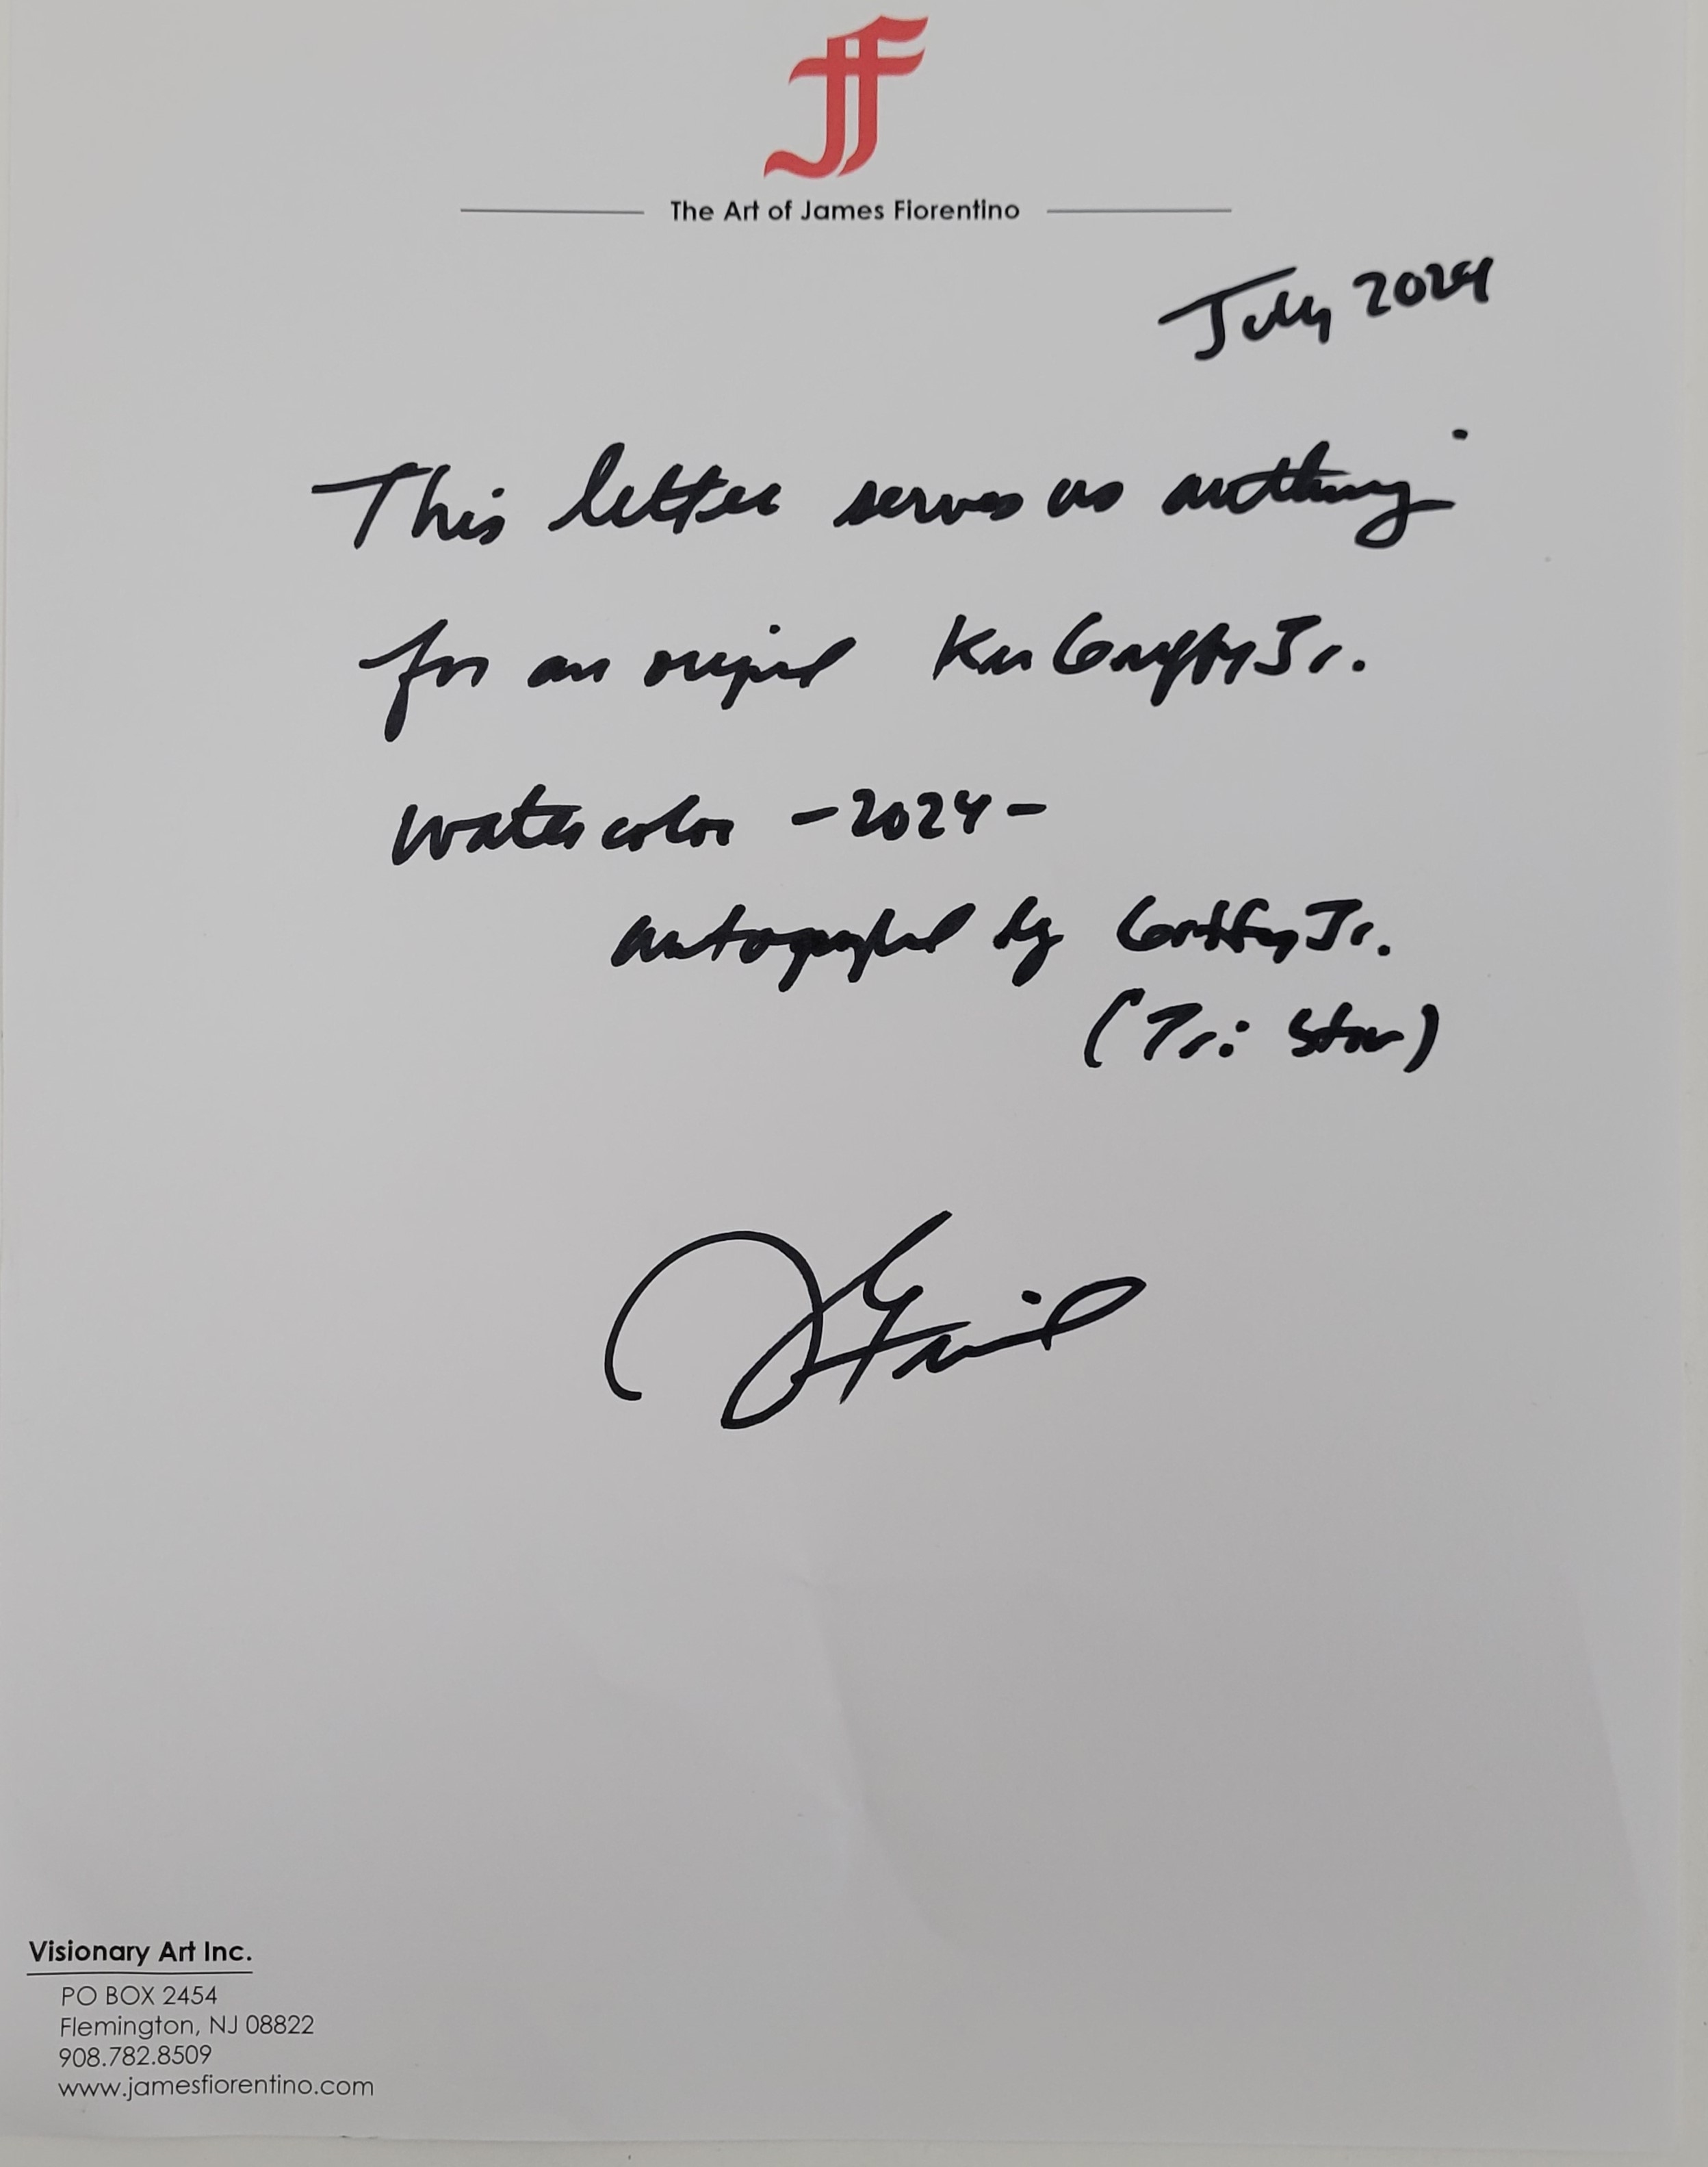 JF
The Art of James Fiorentino
July 2024
This letter serves as
for an original Ken Griffey Jr.
watercolor -2024-
autographed by Griffey Jr.
(Tri Star)
Visionary Art Inc.
PO BOX 2454
Flemington, NJ 08822
908.782.8509
www.jamesfiorentino.com